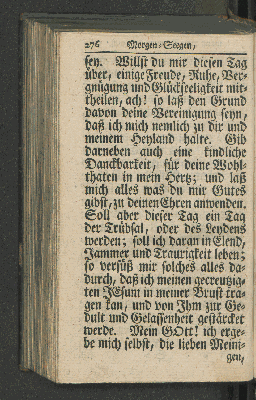 276 Morgen-Seegen,
sey. Willst du mir diesen Tag
über, einige Freude, Ruhe, Ver-
gnügung und Glückseeligkeit mit-
theilen, ach! so laß den Grund
davon deine Vereinigung seyn,
daß ich mich nemlich zu dir und
meinem Heyland halte. Gib
darneben auch eine kindliche
Danckbarkeit, für deine Wohl-
thaten in mein Hertz; und laß
mich alles was du mir Gutes
gibst, zu deinen Ehren anwenden.
Soll aber dieser Tag ein Tag
der Trübsal, oder des Leydens
werden; soll ich daran in Elend,
Jammer und Traurigkeit leben;
so versüß mir solches alles da-
durch, daß ich meinen gecreutzig-
ten JEsum in meiner Brust tra-
gen kan, und von Ihm zur Ge-
dult und Gelassenheit gestärcket
werde. Mein GOtt! ich erge-
be mich selbst, die lieben Meini-
gen,